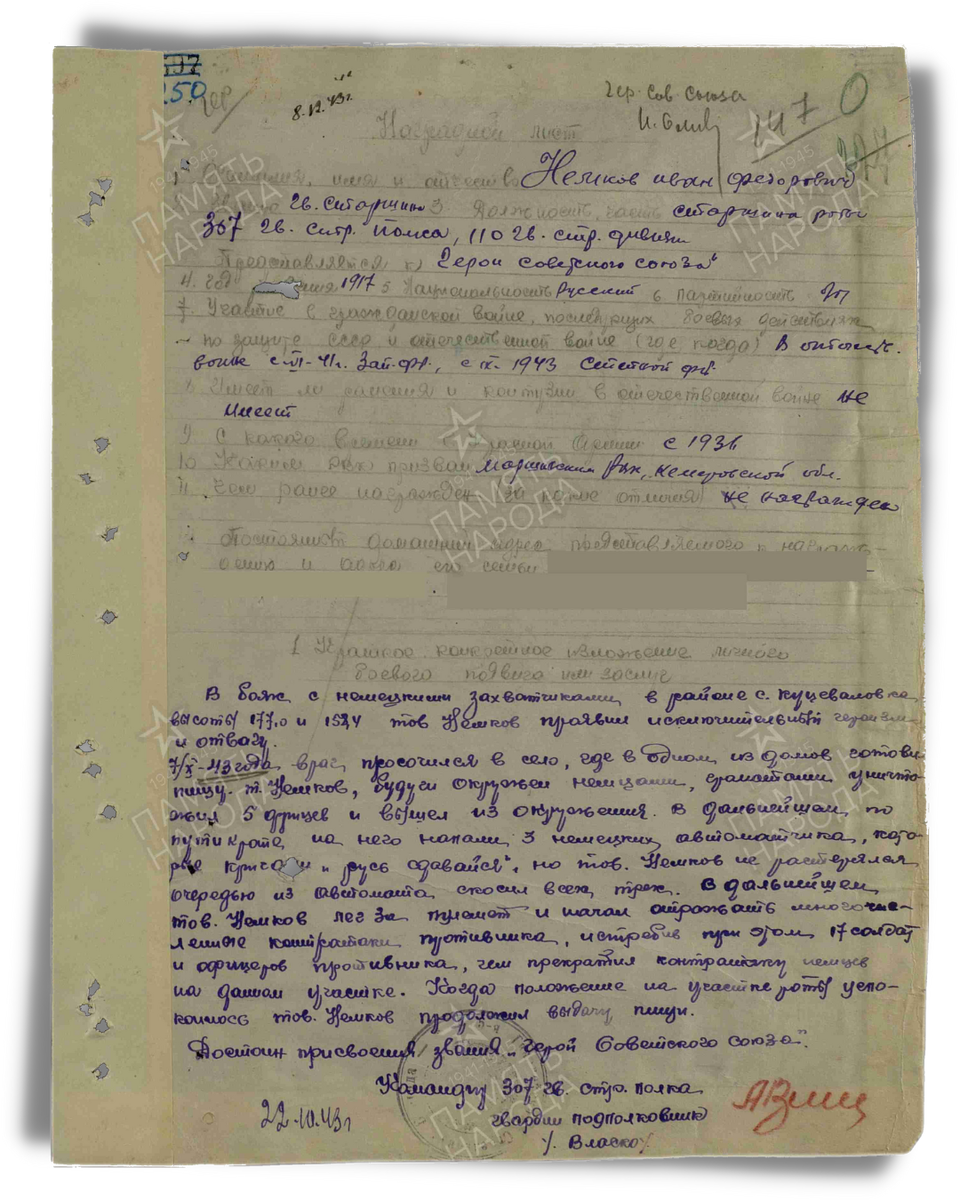 250
8.12.43г.
гер. Сов. Союза
147
0
Наградной лист
1 Фамилия, имя и отчество Немков Иван Федорович
Гв. старшина 3. Должность, часть старшина роты
307 гв. стр. полка, 110 гв. стр. дивизии
Представляется к "Герой Советского Союза"
4. Год 1917 5 Национальность Русский 6 Партийность
7. Участие в гражданской войне, последующих боевых действиях
по защите СССР и отечественной войне (где когда) В отечеств.
войне с VI-41г. Зап. фр., с IX. 1943 Степной фр.
8 Имеет ли ранения и контузии в отечественной войне не
имеет
9 С какого времени в Красной Армии с 193
10 Каким РВК призван РВК, Кемеровской обл.
11 Чем ранее награжден (за какие отличия) не награжден
Постоянный домашний адрес представляемого к награж-
дению и адрес его семьи
1 Краткое конкретное изложение личного
боевого подвига или заслуг
В боях с немецкими захватчиками в районе с. Куцеваловка
высоты 177,0 и тов Немков проявил исключительный героизм
и отвагу.
7/X-43 года враг просочился в село, где в одном из домов готови
пищу. т. Немков, будучи окружен немцами, гранатами уничто
жил 5 фрицев и вышел из окружения. В дальнейшем по
пути к роте на него напали 3 немецких автоматчика, кото
рые кричали "русь сдавайся", но тов. Немков не растерялся
очередью из автомата скосил всех трех. В дальнейшем
тов. Немков лег за пулемет и начал отражать многочис-
ленные контратаки противника, истребив при этом 17 солдат
и офицеров противника, чем прекратил контратаку немцев
на данном участке. Когда положение на участке роты успо-
коилось тов. Немков продолжил выдачу пищи.
Достоин присвоения звания "Герой Советского Союза".
Командир 307 гв. стр. полка
22.10.43г гвардии подполковник
/. Власко/.
ПАМЯТЬ НАРОДА
1941-1945